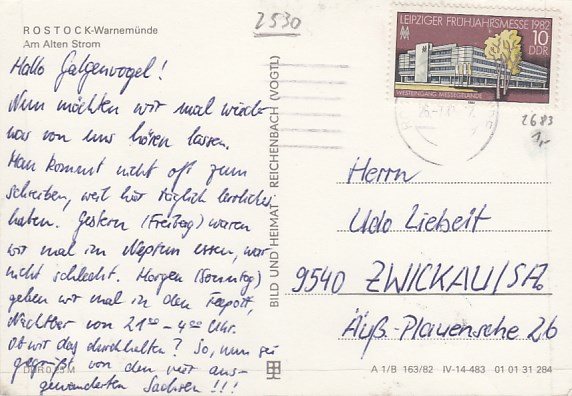 2530
ROSTOCK-Warnemünde
Am Alten Strom
Hallo Galgenvogel!
Nun möchten wir mal wieder
was von uns hören lassen.
Man kommt nicht oft zum
schreiben, weil wir täglich
haben. Gestern (Freitag) waren
wir mal im Neptun essen, war
nicht schlecht. Morgen (Sonntag)
gehen wir mal in den
Nachtbar von 21⁰⁰ - 4⁰⁰ Uhr.
Ob wir das durchhalten? So, nun sei
gegrüßt von den vier aus-
gewanderten Sachsen!!!
DDR 0,25 M
BILD UND HEIMAT REICHENBACH (VOGTL)
LEIPZIGER FRÜHJAHRSMESSE 1982
10
DDR
WESTEINGANG MESSEGELÄNDE
2683
1,-
Herrn
Udo Liebeit
9540 ZWICKAU/SA.
Äuß.-Plauensche 26
A 1/B 163/82 IV-14-483 01 01 31 284